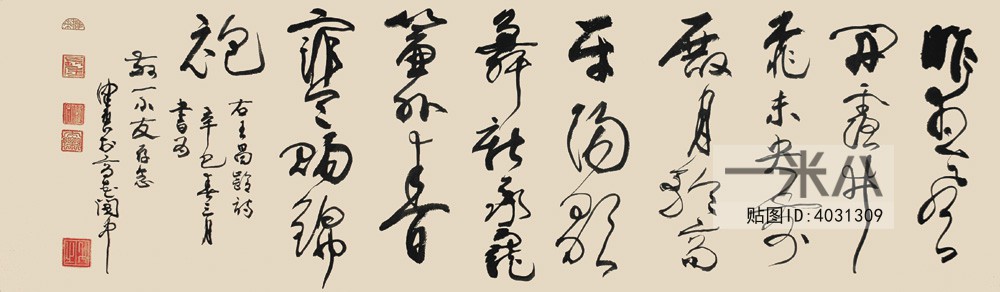 昨夜風
開露井
桃未央前
殿月輪高
平陽歌
舞新承寵
簾外春
寒賜錦
袍
右王昌齡詩
辛巳春三月
書為
敬一小友存念
一米八
贴图ID:4031309